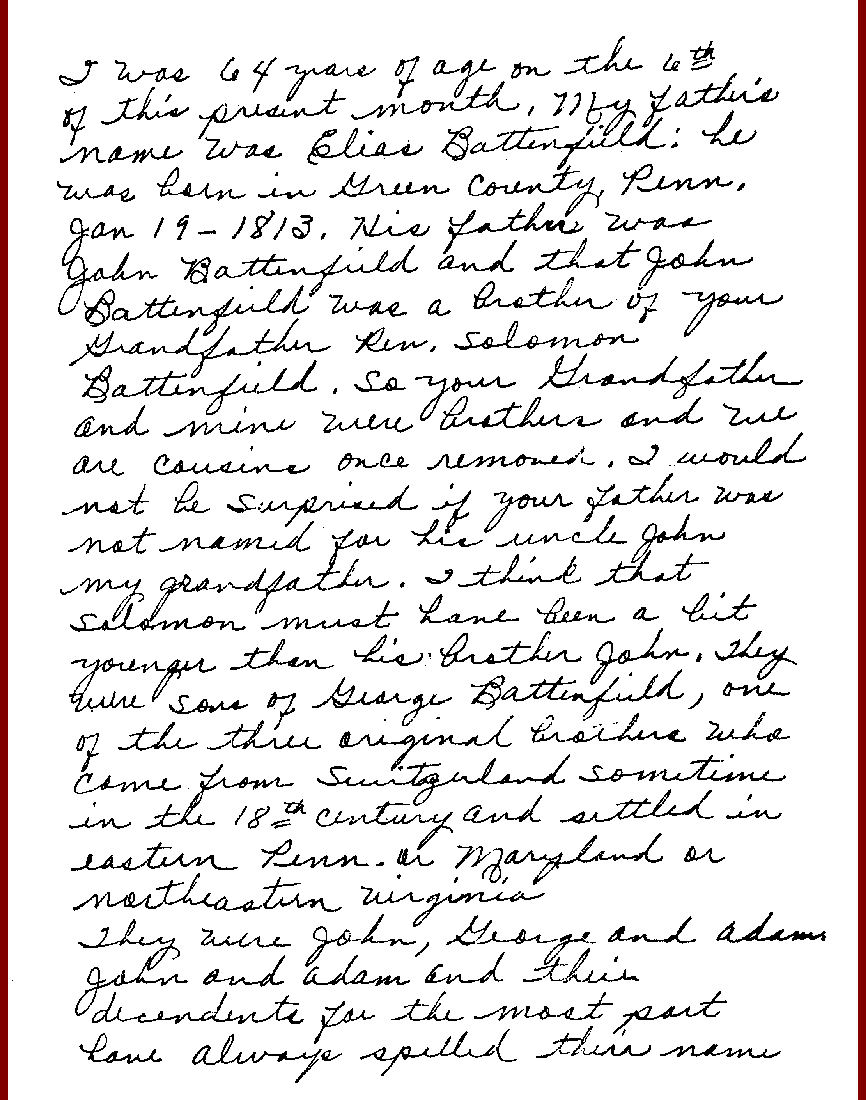 I was 64 years of age on the 6th
of this present month. My father's
name was Elias Battenfield: he
was born in Green County, Penn.
Jan 19 - 1813. His father was
John Battenfield and that John
Battenfield was a brother of your
Grandfather Rev. Solomon
Battenfield. So your Grandfather
and mine were brothers and we
are cousins once removed. I would
not be surprised if your father was
not named for his uncle John
my grandfather. I think that
Solomon must have been a bit
younger than his brother John. They
were sons of George Battenfield, one
of the three original brothers who
come from Switzerland sometime
in the 18th century and settled in
eastern Penn. or Maryland or
northeastern Virginia
They were John, George and Adam.
John and Adam and their
decendents for the most part
have always spelled their name